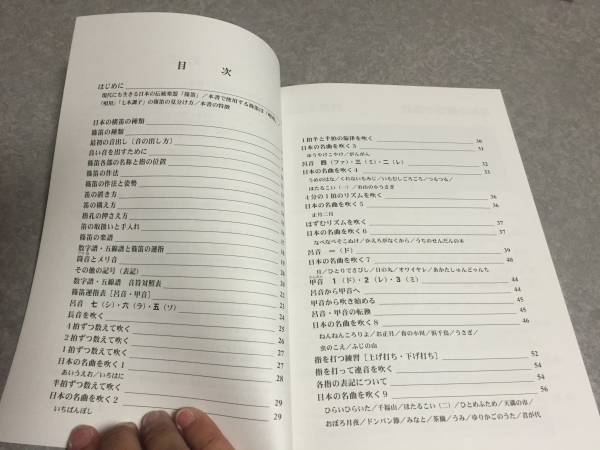 目 次
はじめに
現代にも生きる日本の伝統楽器「篠笛」／本書で使用する篠笛は「唄用」／
「唄用」「七本調子」の篠笛の見分け方／本書の特徴
日本の横笛の種類
篠笛の種類
最初の音出し（音の出し方）
良い音を出すために
篠笛各部の名称と指の位置
篠笛の作法
篠笛の作法と姿勢
笛の置き方
笛の構え方
指孔の押さえ方
笛の取扱いと手入れ
篠笛の楽譜
数字譜・五線譜と篠笛の運指
筒音とメリ音
その他の記号（表記）
数字譜・五線譜 音符対照表
篠笛運指表［呂音・甲音］
呂音 七（シ）・六（ラ）・五（ソ） 24
長音を吹く 25
4拍ずつ数えて吹く 26
2拍ずつ数えて吹く 26
1拍ずつ数えて吹く 27
日本の名曲を吹く1 28
あいうえお／いちはに
半拍ずつ数えて吹く 29
日本の名曲を吹く2 29
いちばんぼし
1拍半と半拍の旋律を吹く 30
日本の名曲を吹く3 31
ゆうやけこやけ／がんがん
呂音 四（ファ）・三（ミ）・二（レ） 32
日本の名曲を吹く4 33
うめのはな／くれないもみじ／いもむしごろごろ／つんつん／
ほたるこい（一）／お山の小うさぎ
4分の1拍のリズムを吹く
日本の名曲を吹く5 37
正月二日
はずむリズムを吹く
日本の名曲を吹く6 37
なべなべそこぬけ／かえろがなくから／うちのせんだんの木
呂音 一（ド） 39
日本の名曲を吹く7 40
月／ひとりでさびし／日の丸／オワイヤレ／あかたしゅんどゅんち
甲音 1（ド）・2（レ）・3（ミ） 44
呂音から甲音へ 44
甲音から吹き始める 45
呂音・甲音の転換 45
日本の名曲を吹く8 46
ねんねんころりよ／お正月／春の小川／浜千鳥／うさぎ／
虫のこえ／ふじの山
指を打つ練習［上げ打ち・下げ打ち］ 52
指を打って連音を吹く 54
各指の表記について 54
日本の名曲を吹く9 56
ひらいひらいた／千福山／ほたるこい（二）／ひとめふため／天満の市／
おぼろ月夜／ドンパン節／みなと／茶摘／うみ／ゆりかごのうた／君が代